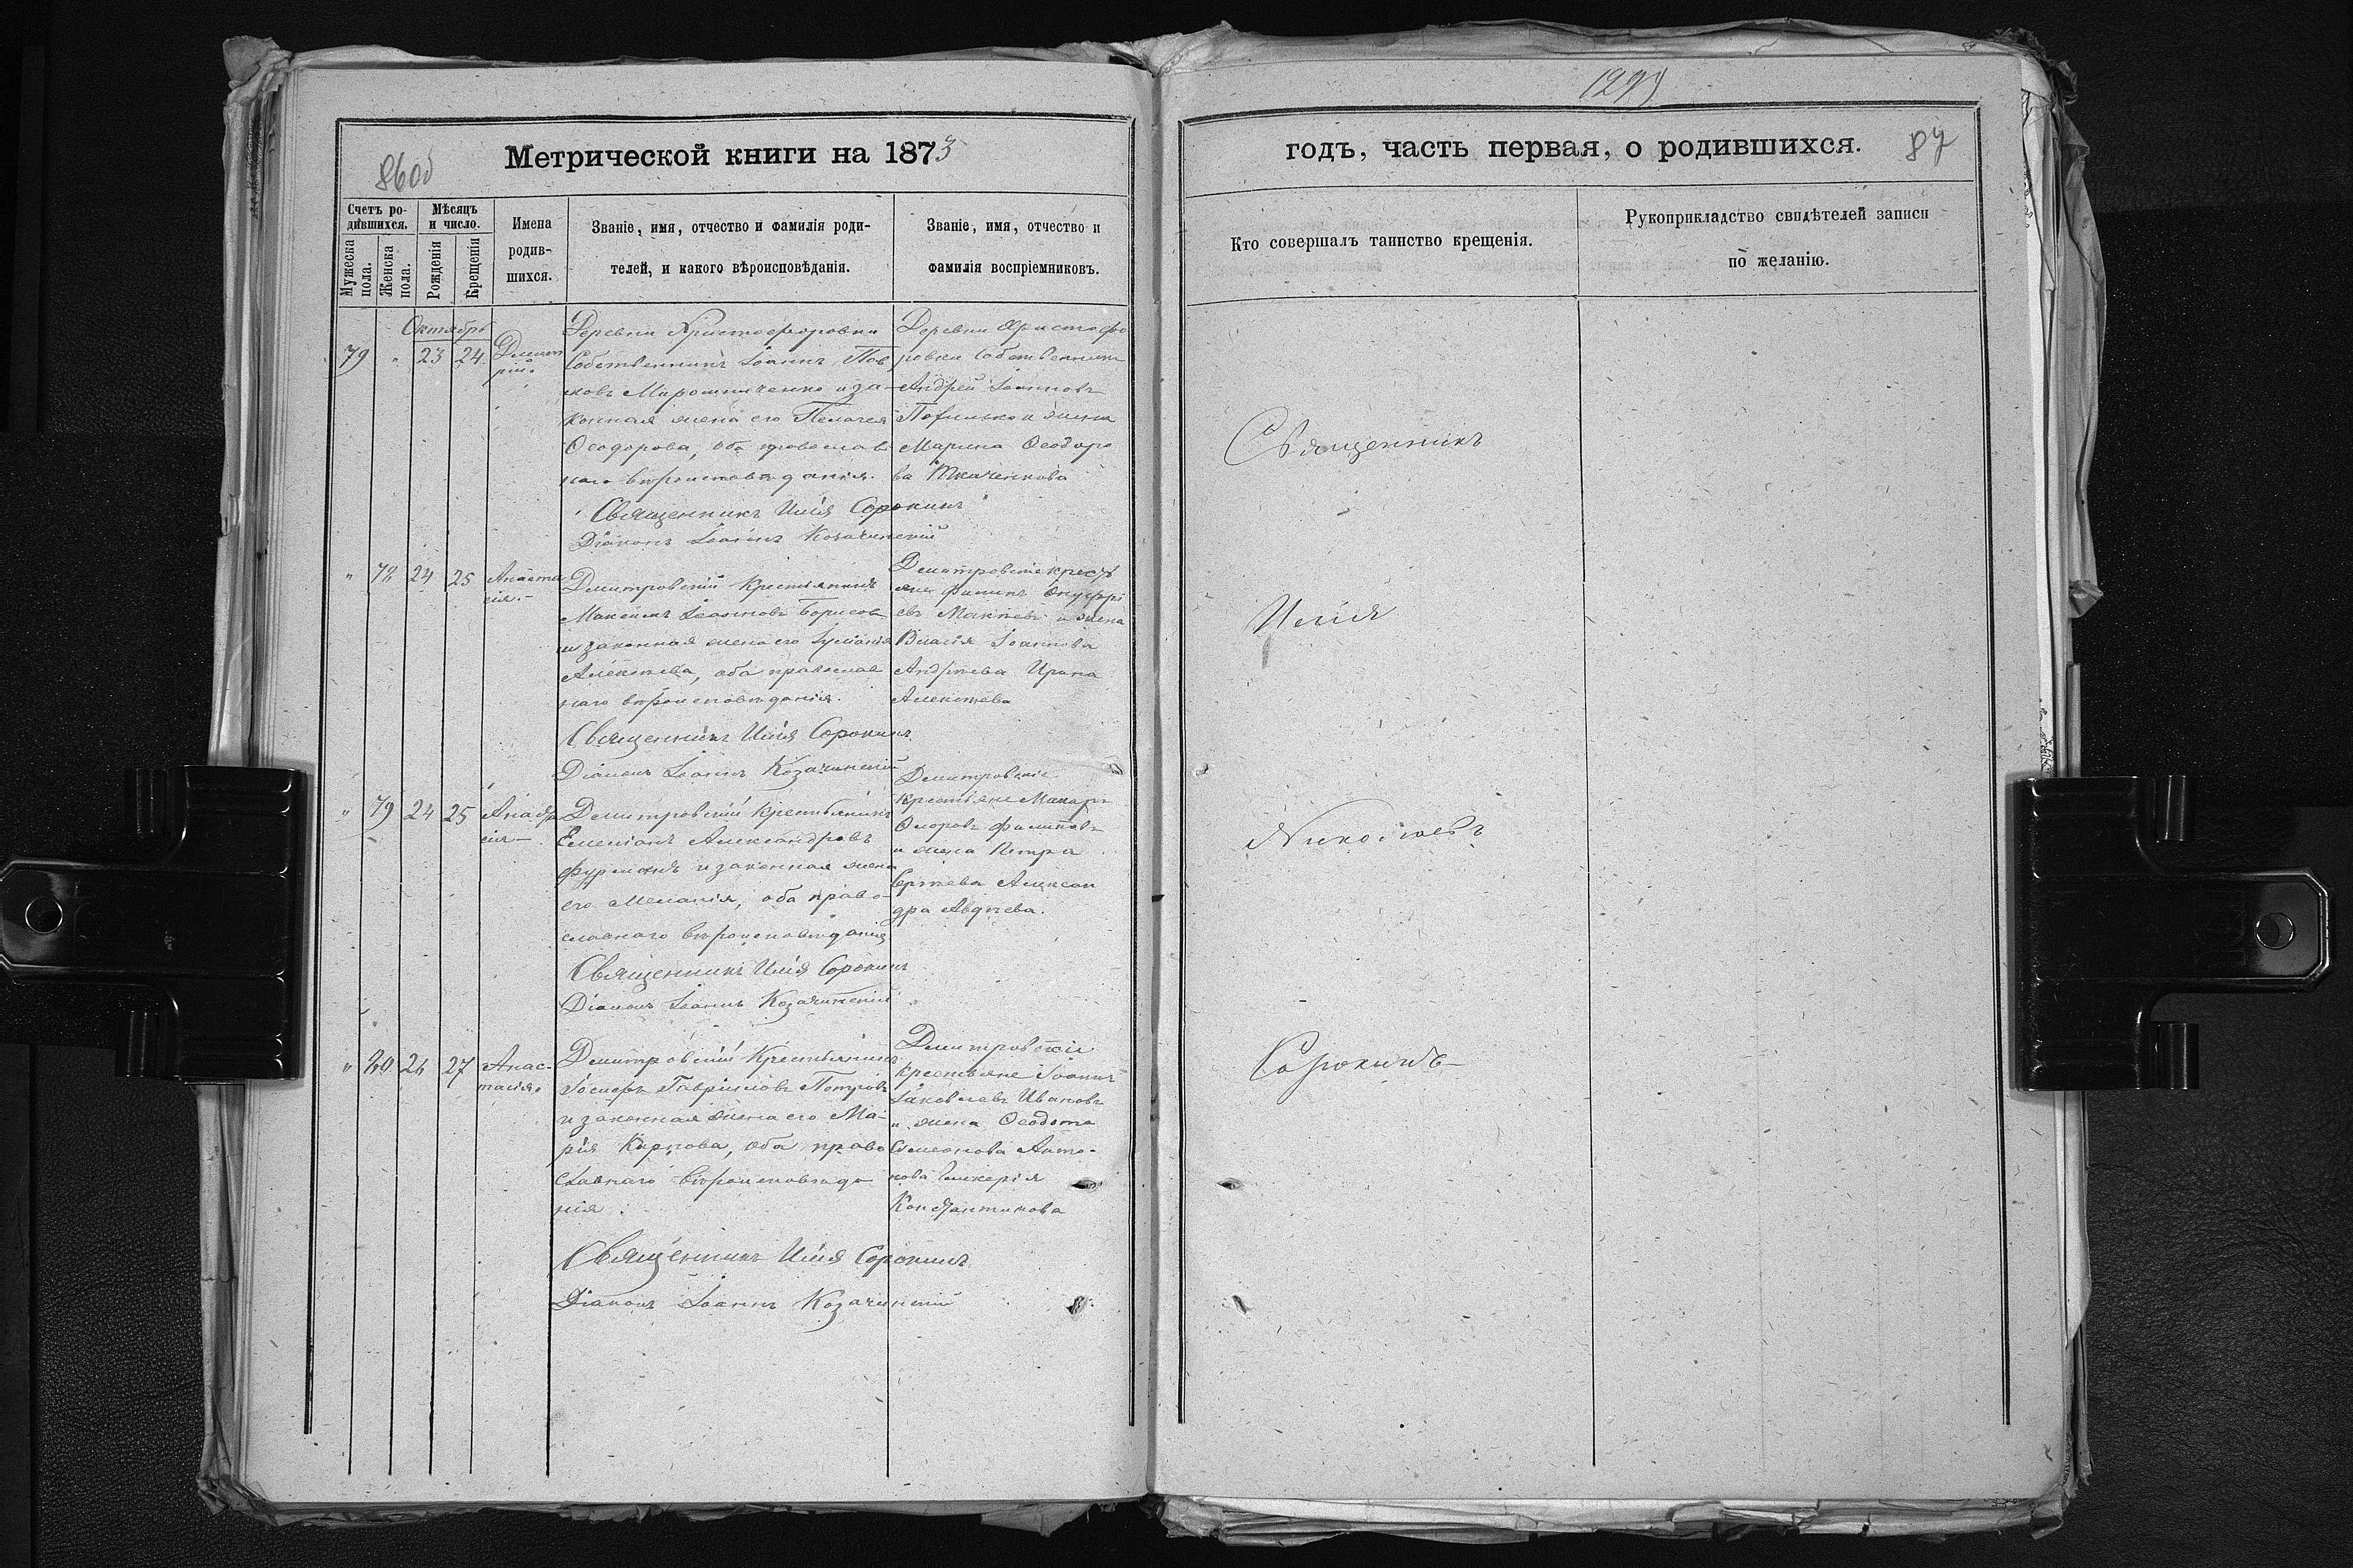 860об
Метрической книги на 1873
Счетъ ро-
дившихся.
Мужеска
пола.
Женска
пола.
Мѣсяцъ
и число.
Рожденія
Крещенія
Имена
родив-
шихся.
Званіе, имя, отчество и фамилія роди-
телей, и какого вѣроисповѣданія.
Званіе, имя, отчество и
фамилія воспріемниковъ.
Октябрь
79 " 23 24 Димит
рій.
Деревни Христофоровки
Собственникъ Іоаннъ
Мирошниченко и за-
конная жена его Пелагея
Ѳеодорова, оба православ
наго вѣроисповѣданія.
Священникъ Илія Сорокинъ
Діаконъ Іоаннъ Козачинскій
Деревни Христофо
ровки Собственникъ
Андрей Іоанновъ
и жена
Марина Ѳеодоро
ва Ткаченкова
" 78 24 25 Анаста
сія.-
Димитровскій Крестьянинъ
Максимъ Іоанновъ Борисов
и законная жена его Іуліанія
Алексѣева, оба православ
наго вѣроисповѣданія.
Священникъ Илія Сорокинъ
Діаконъ Іоаннъ Козачинскій
Димитровскіе кресть
яне Филипъ Онуфрі
евъ и жена
Власія Іоаннова
Андрѣева Ирина
Алексѣева
" 79 24 25
сія-
Димитровскій Крестьянинъ
Емеліанъ Александровъ
Фурманъ и законная жена
его Меланія, оба право-
славнаго вѣроисповѣданія
Священникъ Илія Сорокинъ
Діаконъ Іоаннъ Козачинскій
Димитровскіе
крестьяне Макаръ
Филиповъ
и жена Петра
Сергѣева Алексан
дра Авдѣева.
" 80 26 27 Анас-
тасія.
Димитровскій Крестьянинъ
Іосифъ Гавріиловъ Петровъ
и законная жена его Ма-
рія Карпова, оба право
славнаго вѣроисповѣда
нія.
Священникъ Илія Сорокинъ
Діаконъ Іоаннъ Козачинскій
Димитровскіе
крестьяне Іоаннъ
Іаковлевъ Ивановъ
и жена Ѳеодота
Симеонова Анто-
нова Гликерія
Константинова
1299
годъ, часть первая, о родившихся.
87
Кто совершалъ таинство крещенія.
Рукоприкладство свидѣтелей записи
по желанію.
Священникъ
Илія
Николаевъ
Сорокинъ